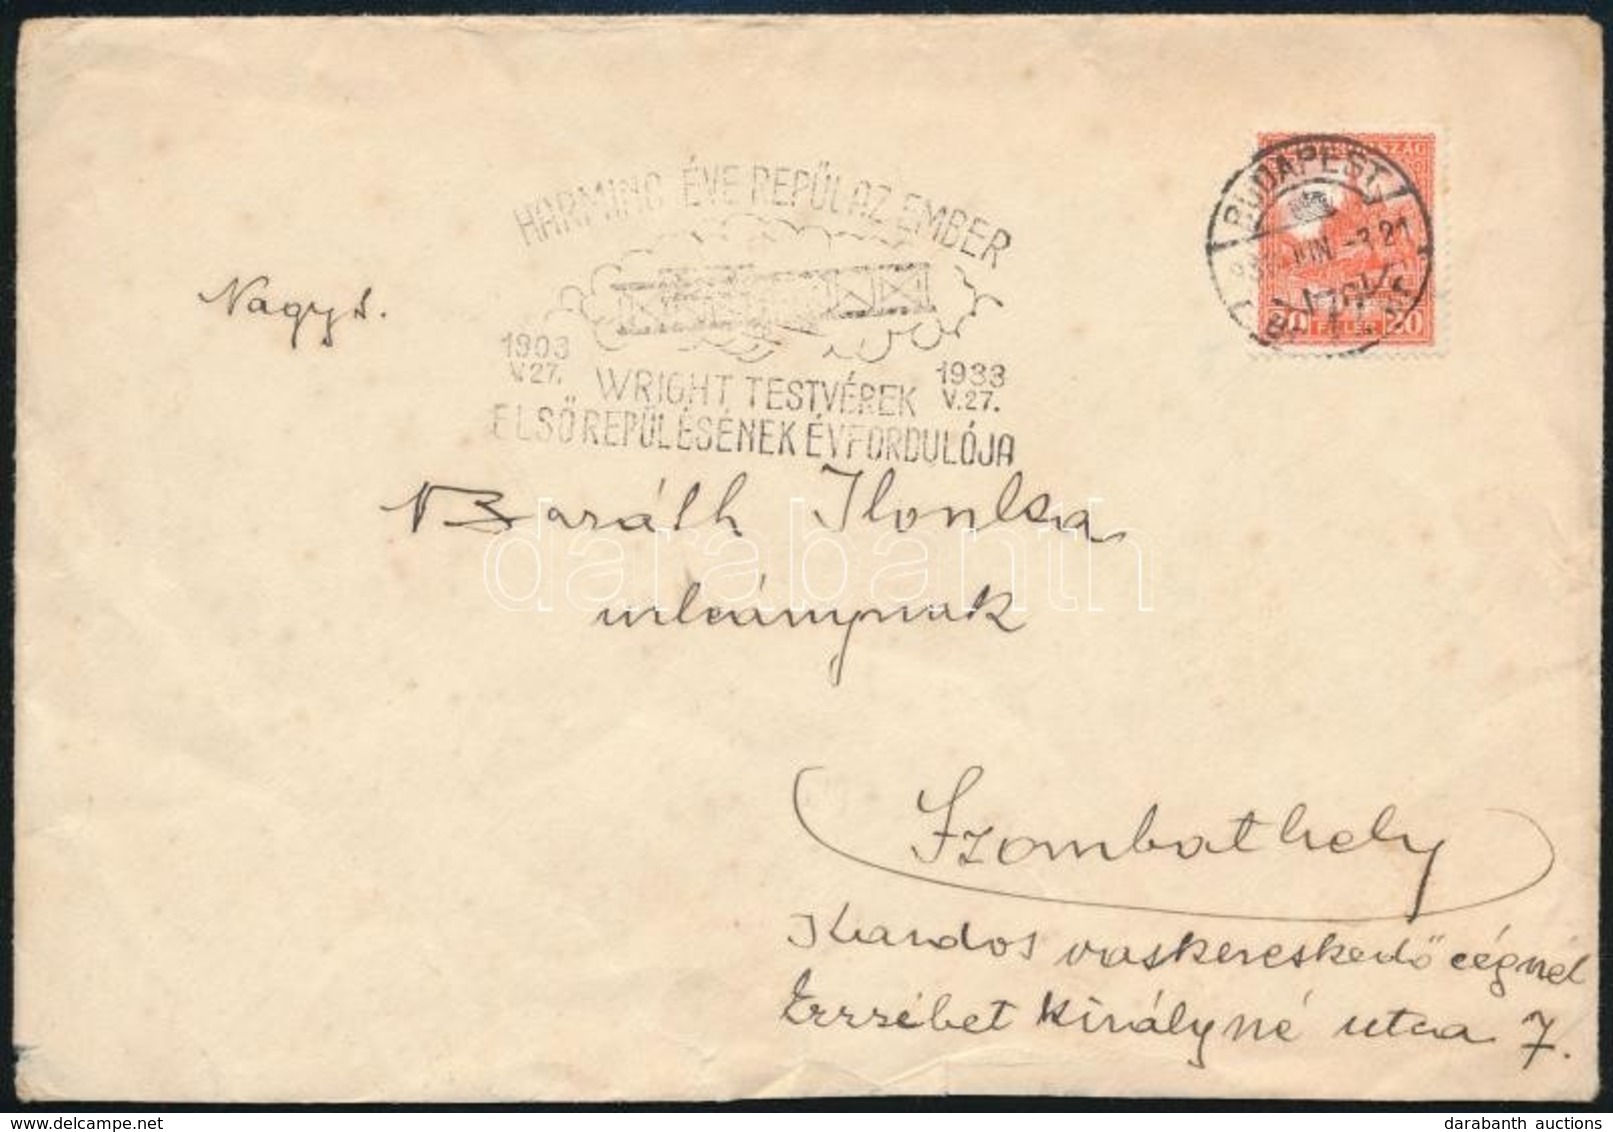 HARMINC ÉVE REPÜL AZ EMBER
1903
V.27.
1933
V.27.
WRIGHT TESTVÉREK
ELSŐ REPÜLÉSÉNEK ÉVFORDULÓJA
BUDAPEST
JUN -3 21
20 FILLÉR 20
Nagys.
Baráth Ilonka
urleánynak
Szombathely
Kardos vaskereskedő cégnél
Erzsébet Királyné utca 7.
darabanth
darabanth auctions